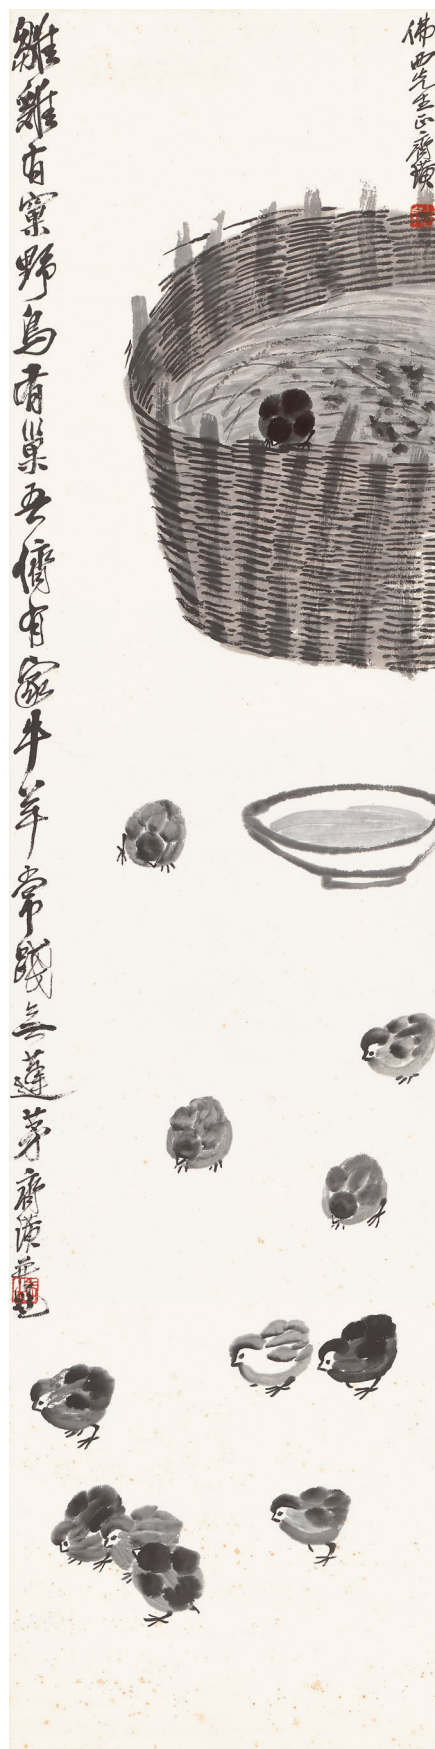 佛西先生正齊璜
雛雞有窠野鳥有巢吾儕有家牛羊常踐無蓬茅齊璜并題